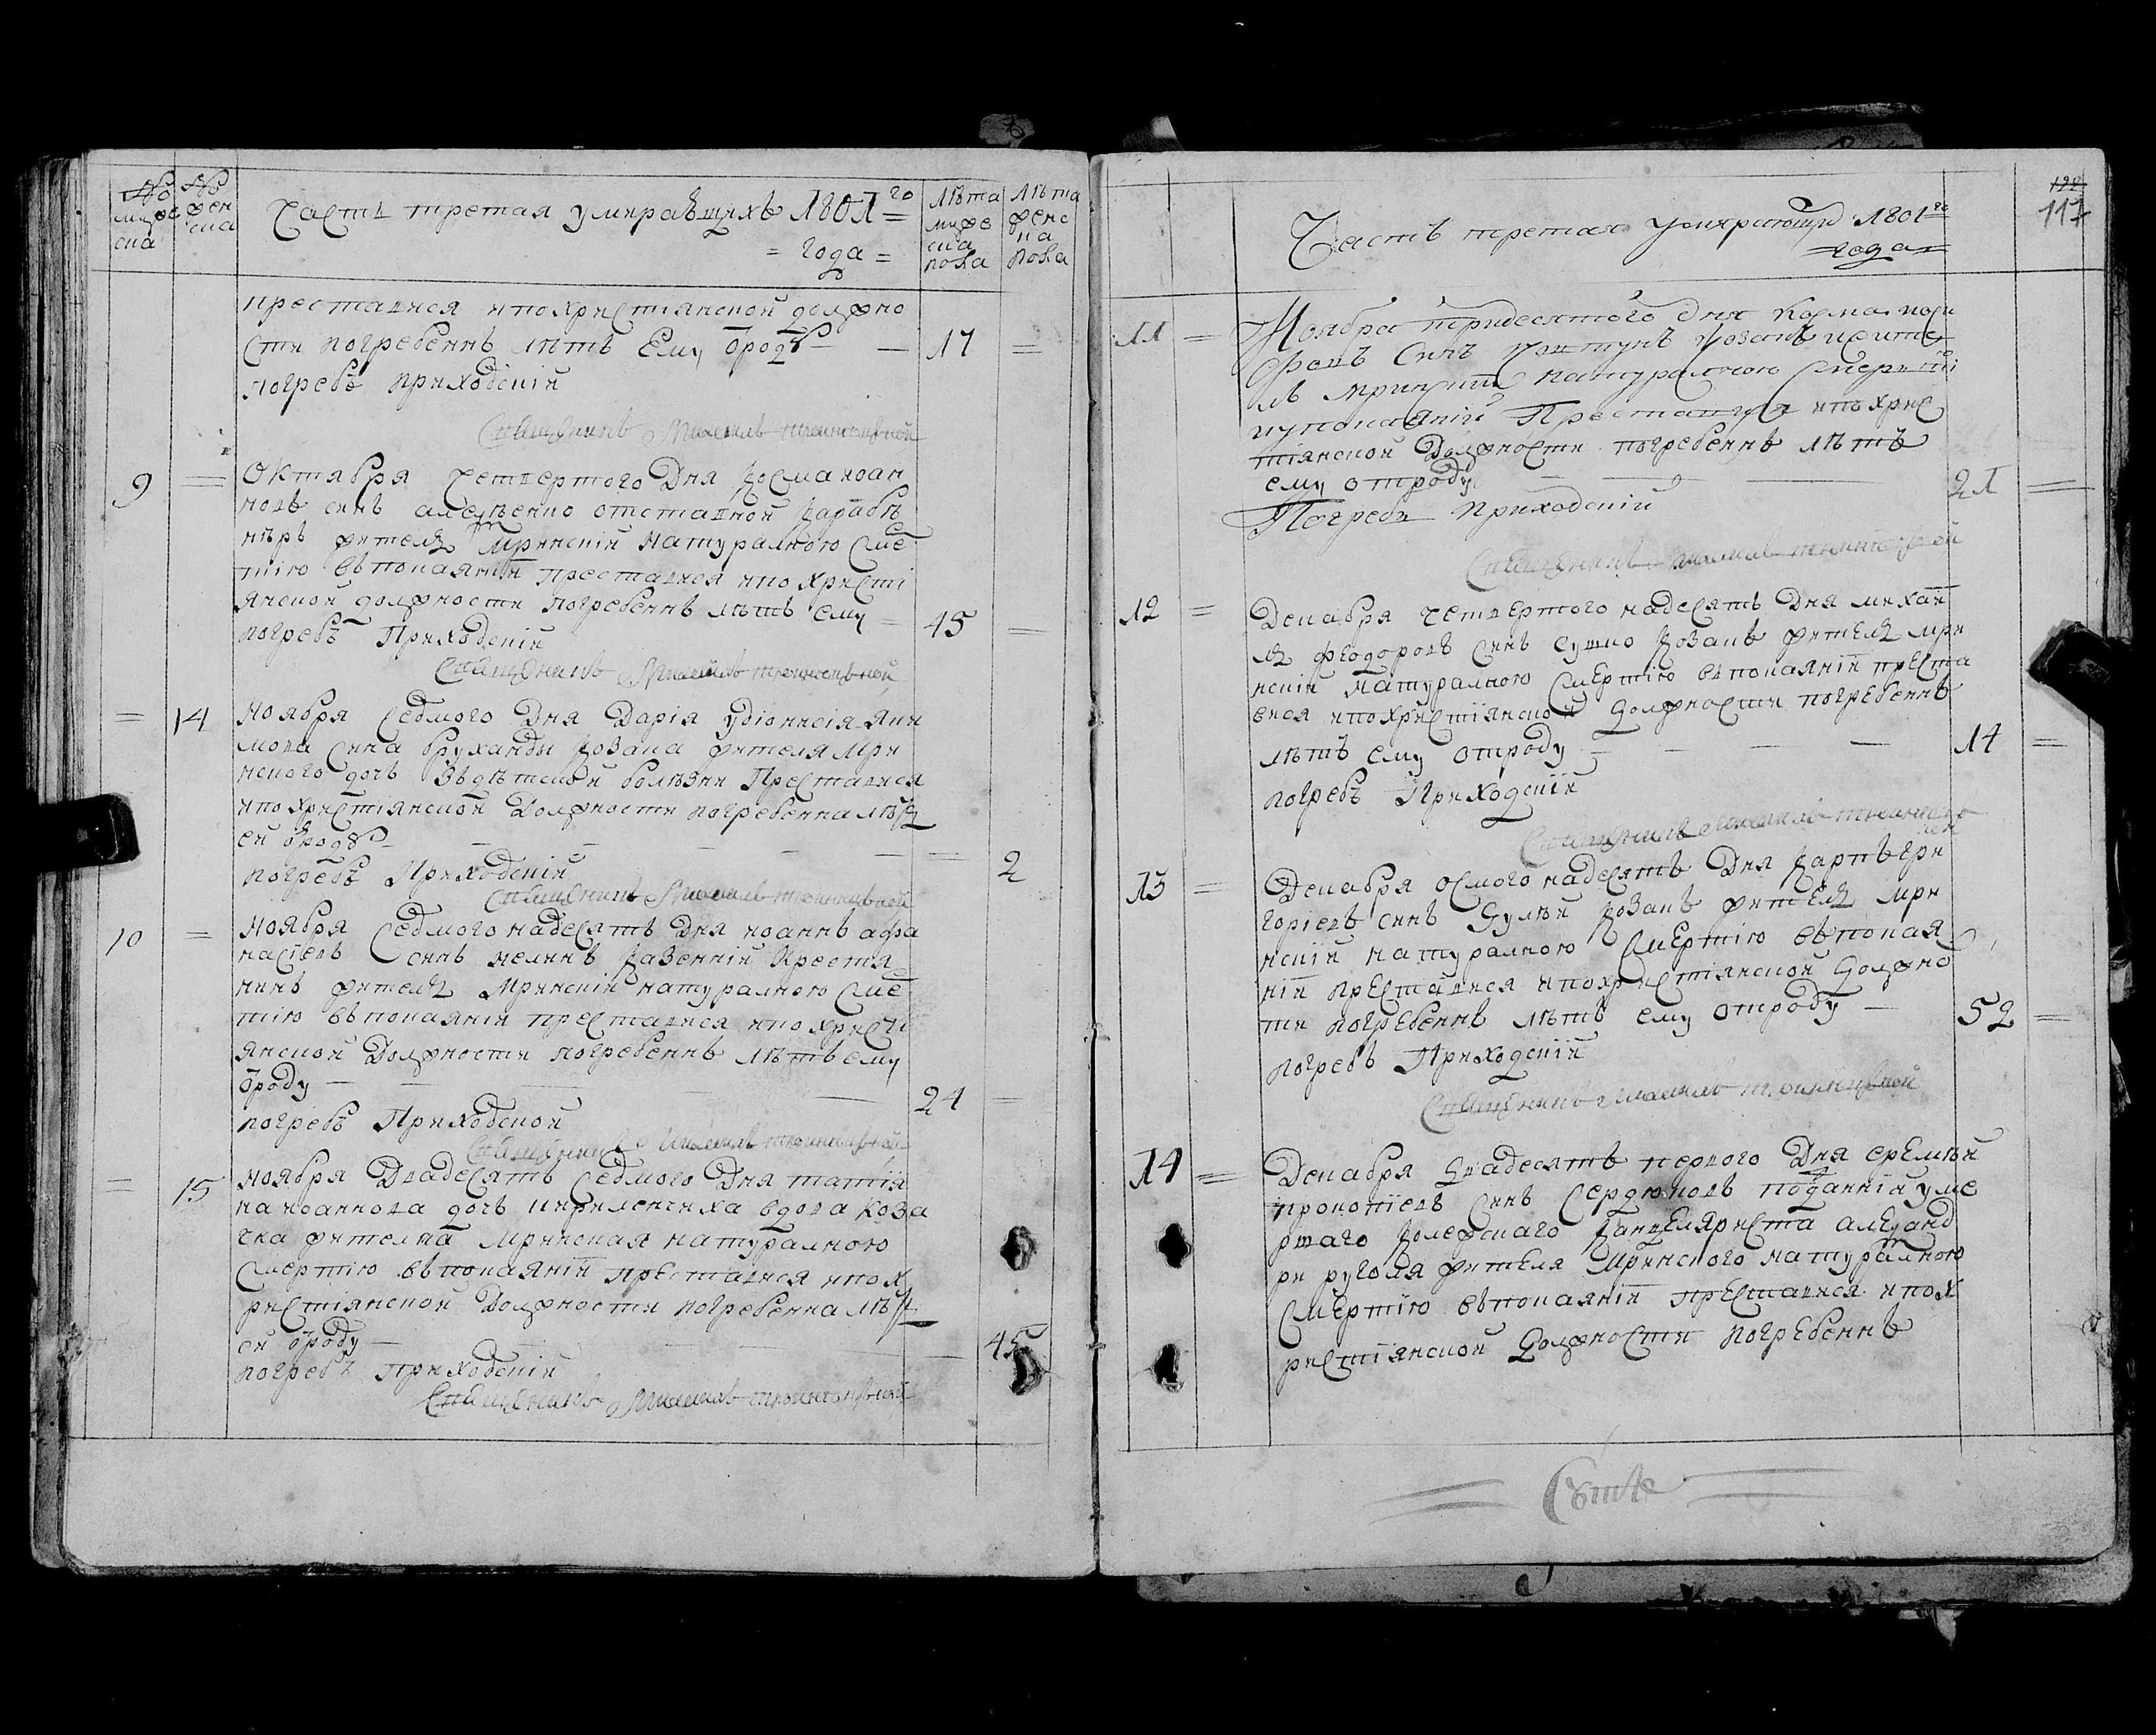 № мужеска
№ женска
Часть третая умиравшихъ 1801го
= года =
Лѣта мужеска пола
Лѣта женска пола
преставися ипохристiянской должно
сти погребеннъ лѣтъ Ему ѿродꙋ — 17 =
погребъ приходскiй
Священникъ Михаилъ
9 = Октября четвертого Дня Косма иоан
новъ синъ отставной Карабѣ
нѣръ житель Мринскiй натуралною сме
тiю въпокаянiи преставися ипо христi
янской должности погребеннъ лѣтъ ему — 45 =
погребъ Приходскiй
Священникъ Михаилъ
= 14 Ноября Седмого Дня Дарiя удiонисiя яки
мова сина бруханди козака жителя Мри
нского дочъ Зъдѣтской болѣзни Преставися
ипо христiянской Должности погребенна лѣтъ
ей ѿродꙋ — — — — — 2
погребъ Приходскiй
Священникъ Михаилъ
10 = Ноября Седмогонадесять Дня иоаннъ афа
насiевъ Синъ казеннiй крестя
нинъ житель Мринскiй натуралною сме
тiю въпокаянiи преставися ипо христi
янской Должности погребеннъ лѣтъ ему
ѿроду — — — 24 =
погребъ Приходской
Священникъ Михаилъ
= 15 Ноября Двадесять Седмого Дня татiя
на иоаннова дочъ кириленчиха вдова коза
чка жителка Мринская натуралною
Смертiю въпокаянiи преставися ипох
ристiянской Должности погребенна лѣтъ
ей ѿроду — — — 45
погребъ приходскiй
Священникъ Михаилъ
117
Часть третая умирающихъ 1801го
= года =
11 = Ноября тридесятого дня Косма
Синъ козакъ жите
ль Мринскiй натуралною Смертiю
Преставися ипо хрис
тiянской Должности погребеннъ лѣтъ
ему отроду — — — 21 =
Погребъ приходскiй
Священникъ Михаилъ
12 = Декабря четвертогонадесять Дня михаи
лъ феодоровъ Синъ козакъ житель мри
нскiй натуралною Смертiю въпокаянiи преста
вися ипохристiянской должности погребеннъ
лѣтъ ему отроду — — — — 14 =
погребъ Приходскiй
Священникъ Михаилъ
13 = Декабря осмогонадесять Дня Карпъ гри
горiевъ синъ козакъ житель Мри
нскiй натуралною Смертiю въпокая
нiи преставися ипохристiянской должно
сти погребеннъ лѣтъ ему отроду — 52 =
погребъ Приходскiй
Священникъ Михаилъ
14 = Декабря двадесять первого Дня еремѣй
прокопiевъ Синъ Сердюковъ подданнiй уме
ршаго колежскаго канцеляриста алеѯанд
ри жителя Мринского натуралною
Смертiю въпокаянiи преставися ипох
ристiянской должности погребеннъ